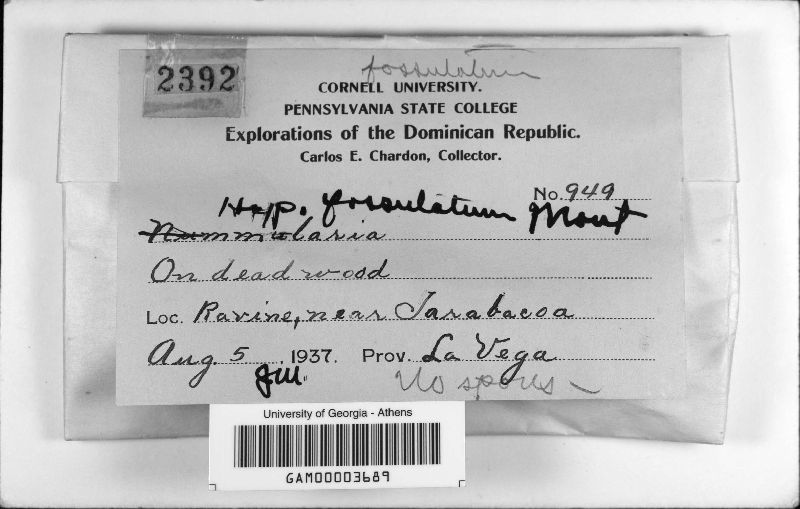 2392
fossulatum
CORNELL UNIVERSITY.
PENNSYLVANIA STATE COLLEGE
Explorations of the Dominican Republic.
Carlos E. Chardon, Collector.
No. 949
Hyp. fossulatum Mont
Nummularia
On dead wood
Loc. Ravine, near Jarabacoa
Aug. 5, 1937. Prov. La Vega
JHM.
No spores —
University of Georgia - Athens
GAM00003689